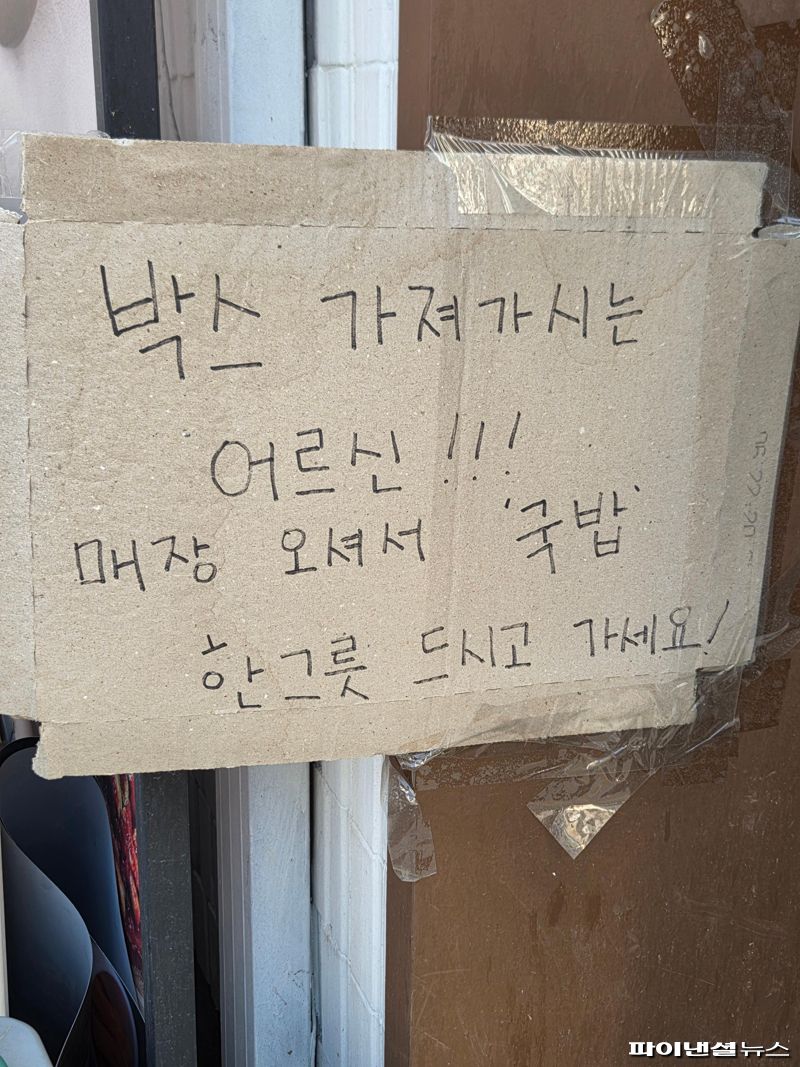 박스 가져가시는
어르신!!!
매장 오셔서 '국밥'
한그릇 드시고 가세요!
파이낸셜뉴스